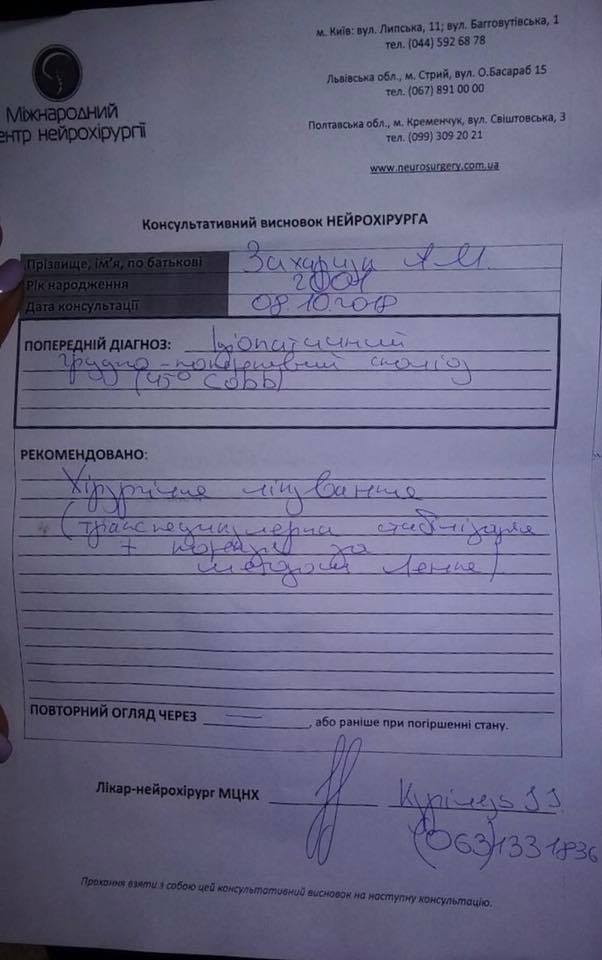 м. Київ: вул. Липська, 11; вул. Багговутівська, 1
тел. (044) 592 68 78
Львівська обл., м. Стрий, вул. О.Басараб 15
тел. (067) 891 00 00
Полтавська обл., м. Кременчук, вул. Свіштовська, 3
тел. (099) 309 20 21
www.neurosurgery.com.ua
Міжнародний
ентр нейрохірургії
Консультативний висновок НЕЙРОХІРУРГА
Прізвище, ім'я, по батькові А.М.
Рік народження
Дата консультації 08.10.2018
ПОПЕРЕДНІЙ ДІАГНОЗ: Ідіопатичний
грудо-поперековий сколіоз
(45° Cobb)
РЕКОМЕНДОВАНО:
Хірургічне лікування
(транспедикулярна стабілізація
+ за
методом Ленке)
ПОВТОРНИЙ ОГЛЯД ЧЕРЕЗ , або раніше при погіршенні стану.
Лікар-нейрохірург МЦНХ
(063)1331836
Прохання взяти з собою цей консультативний висновок на наступну консультацію.